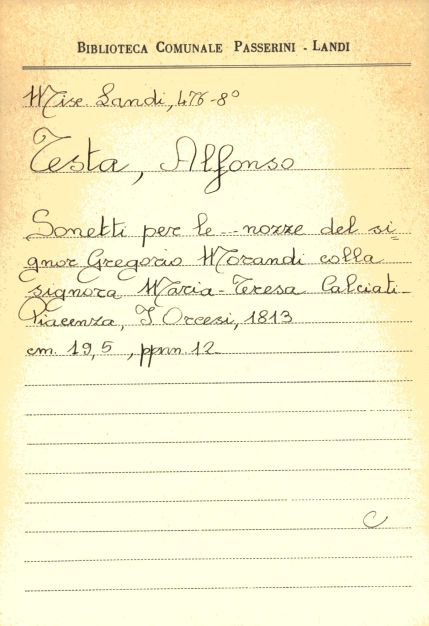 BIBLIOTECA COMUNALE PASSERINI - LANDI
Misc. Landi, 476-8°
Testa, Alfonso
Sonetti per le -- nozze del si=
gnor Gregorio Morandi colla
signora Maria-Teresa Calciati-
Piacenza, I Orcesi, 1813
cm. 19,5, ppnn. 12
C